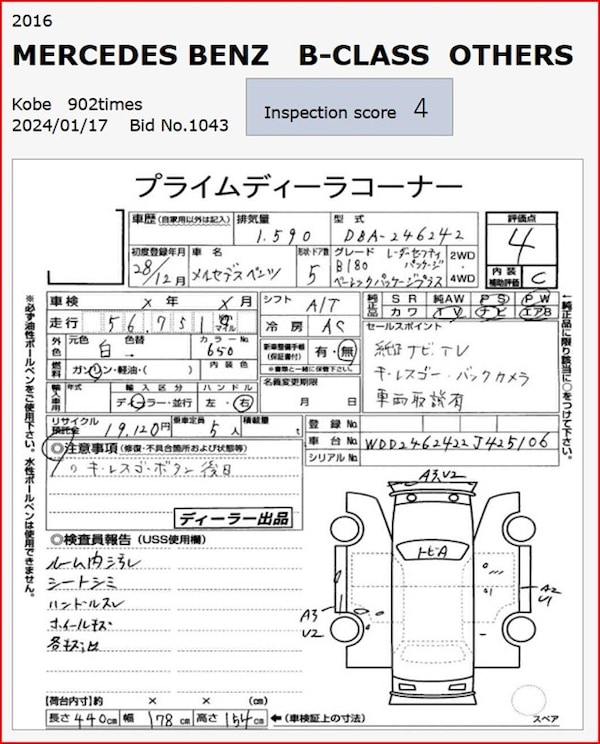 2016
MERCEDES BENZ B-CLASS OTHERS
Kobe 902times
2024/01/17 Bid No.1043
Inspection score 4
プライムディーラコーナー
車歴 (自家用以外は記入) 排気量 型式 評価点
1.590 DBA-246242 4
初度登録年月 車名 形状・ドア数 グレード 2WD 4WD
28/12月 メルセデスベンツ 5 B180 レーダーセーフティパッケージ
ベーシックパッケージプラス
内装補助評価 C
車検 × 年 × 月 シフト A/T 純正品 SR 純AW PS PW
カワ TV ナビ エアB
走行 56,751 マイル 冷房 AC セールスポイント
外色 元色 色替 カラーNo.
白 650
新車整備手帳(保証書付) 有・無
※書類と一緒に保管下さい。
純正ナビ、TV
キーレスゴー・バックカメラ
車両取説有
燃料 ガソリン・軽油・( ) 内装色
名義変更期限
月 日
輸入車用 年式 輸入区分 ハンドル
ディーラー・並行 左・右
リサイクル預託金 19,120円 乗車定員 5人 積載量 t
登録No.
車台No. WDD2462422J425106
シリアルNo.
◎注意事項 (修復・不具合箇所および状態等)
1ヶキーレスゴーボタン後日
ディーラー出品
◎検査員報告 (USS使用欄)
ルーム内汚れ
シートシミ
ハンドルスレ
ホイールキズ
各キズ凹
A3 V2
トビA
A3
V2
A2
U1
スペア
【荷台内寸】約 × × (cm)
長さ 440cm 幅 178cm 高さ 154cm ←(車検証上の寸法)
※必ず油性ボールペンをご使用下さい。水性ボールペンは使用できません。
←純正品に限り該当に○をつけて下さい。